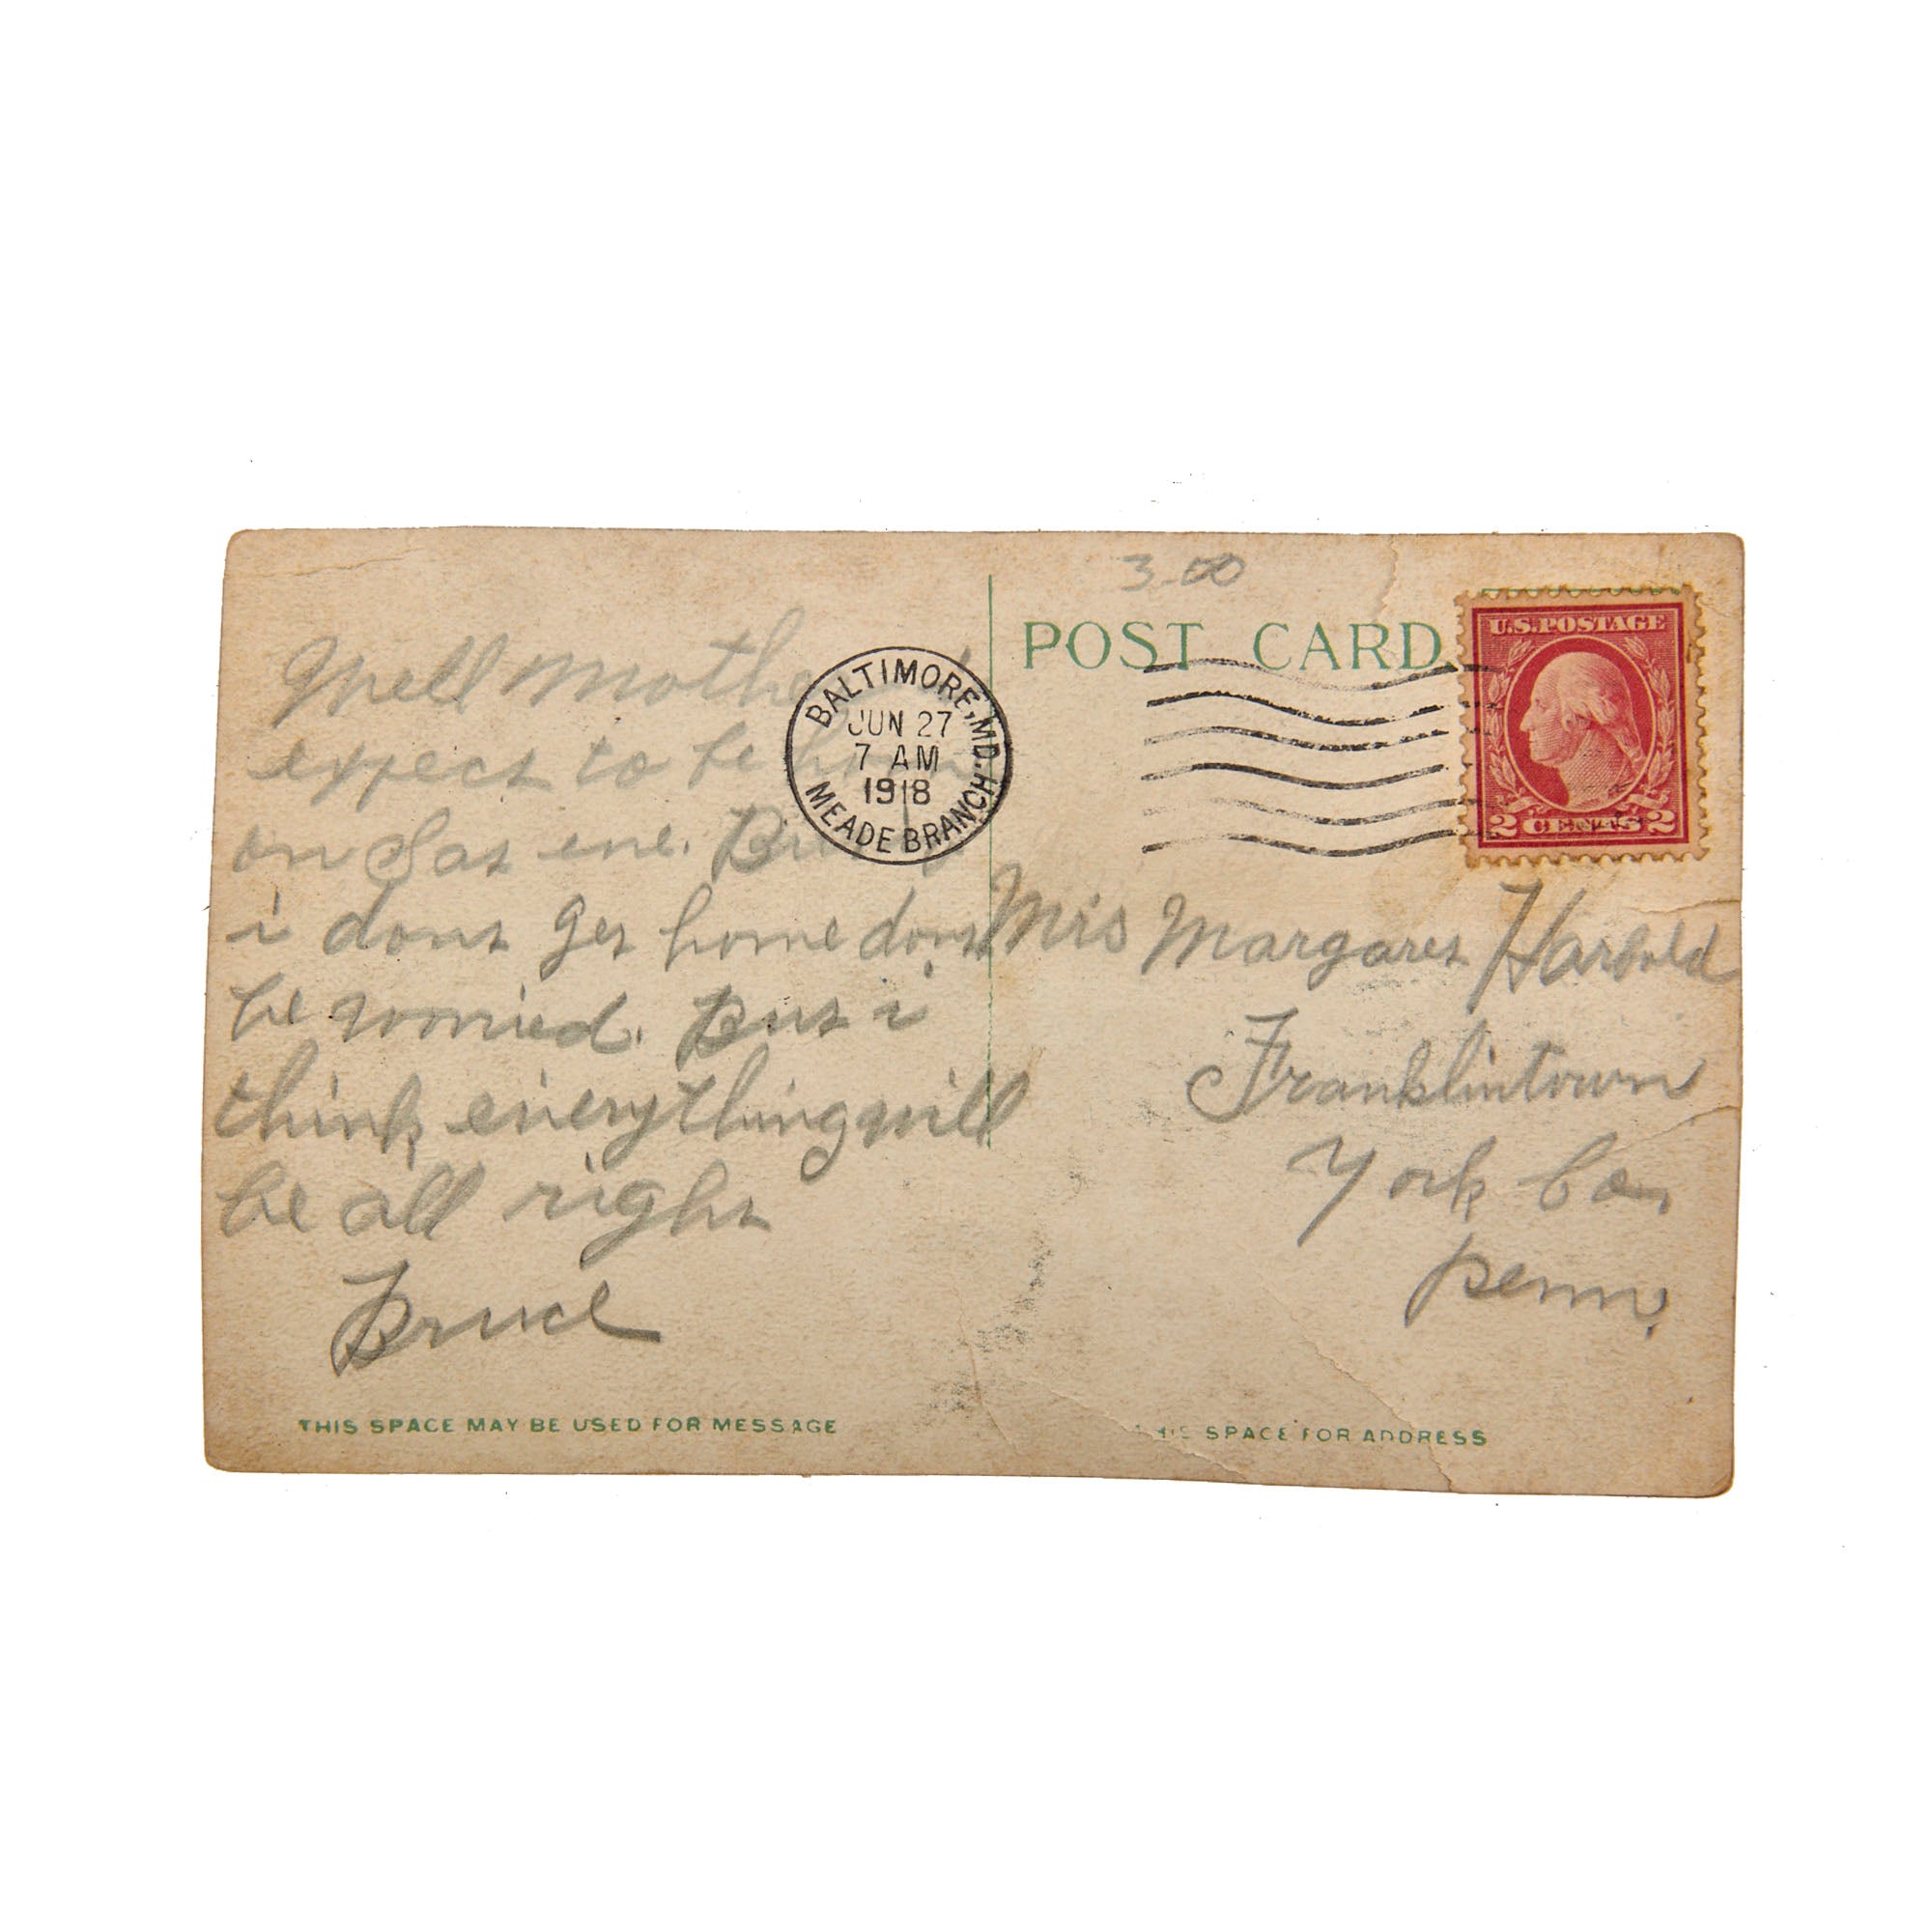 3.00
POST CARD.
U.S. POSTAGE
2 CENTS 2
BALTIMORE, MD.
JUN 27
7 AM
1918
MEADE BRANCH.
Well Mother i
expect to be home
on Sat eve. But if
i dont get home dont
be worried. But i
think everything will
be all right
Bruce
Mrs Margaret Harbold
Franklintown
York Co.
Penn.
THIS SPACE MAY BE USED FOR MESSAGE
THIS SPACE FOR ADDRESS